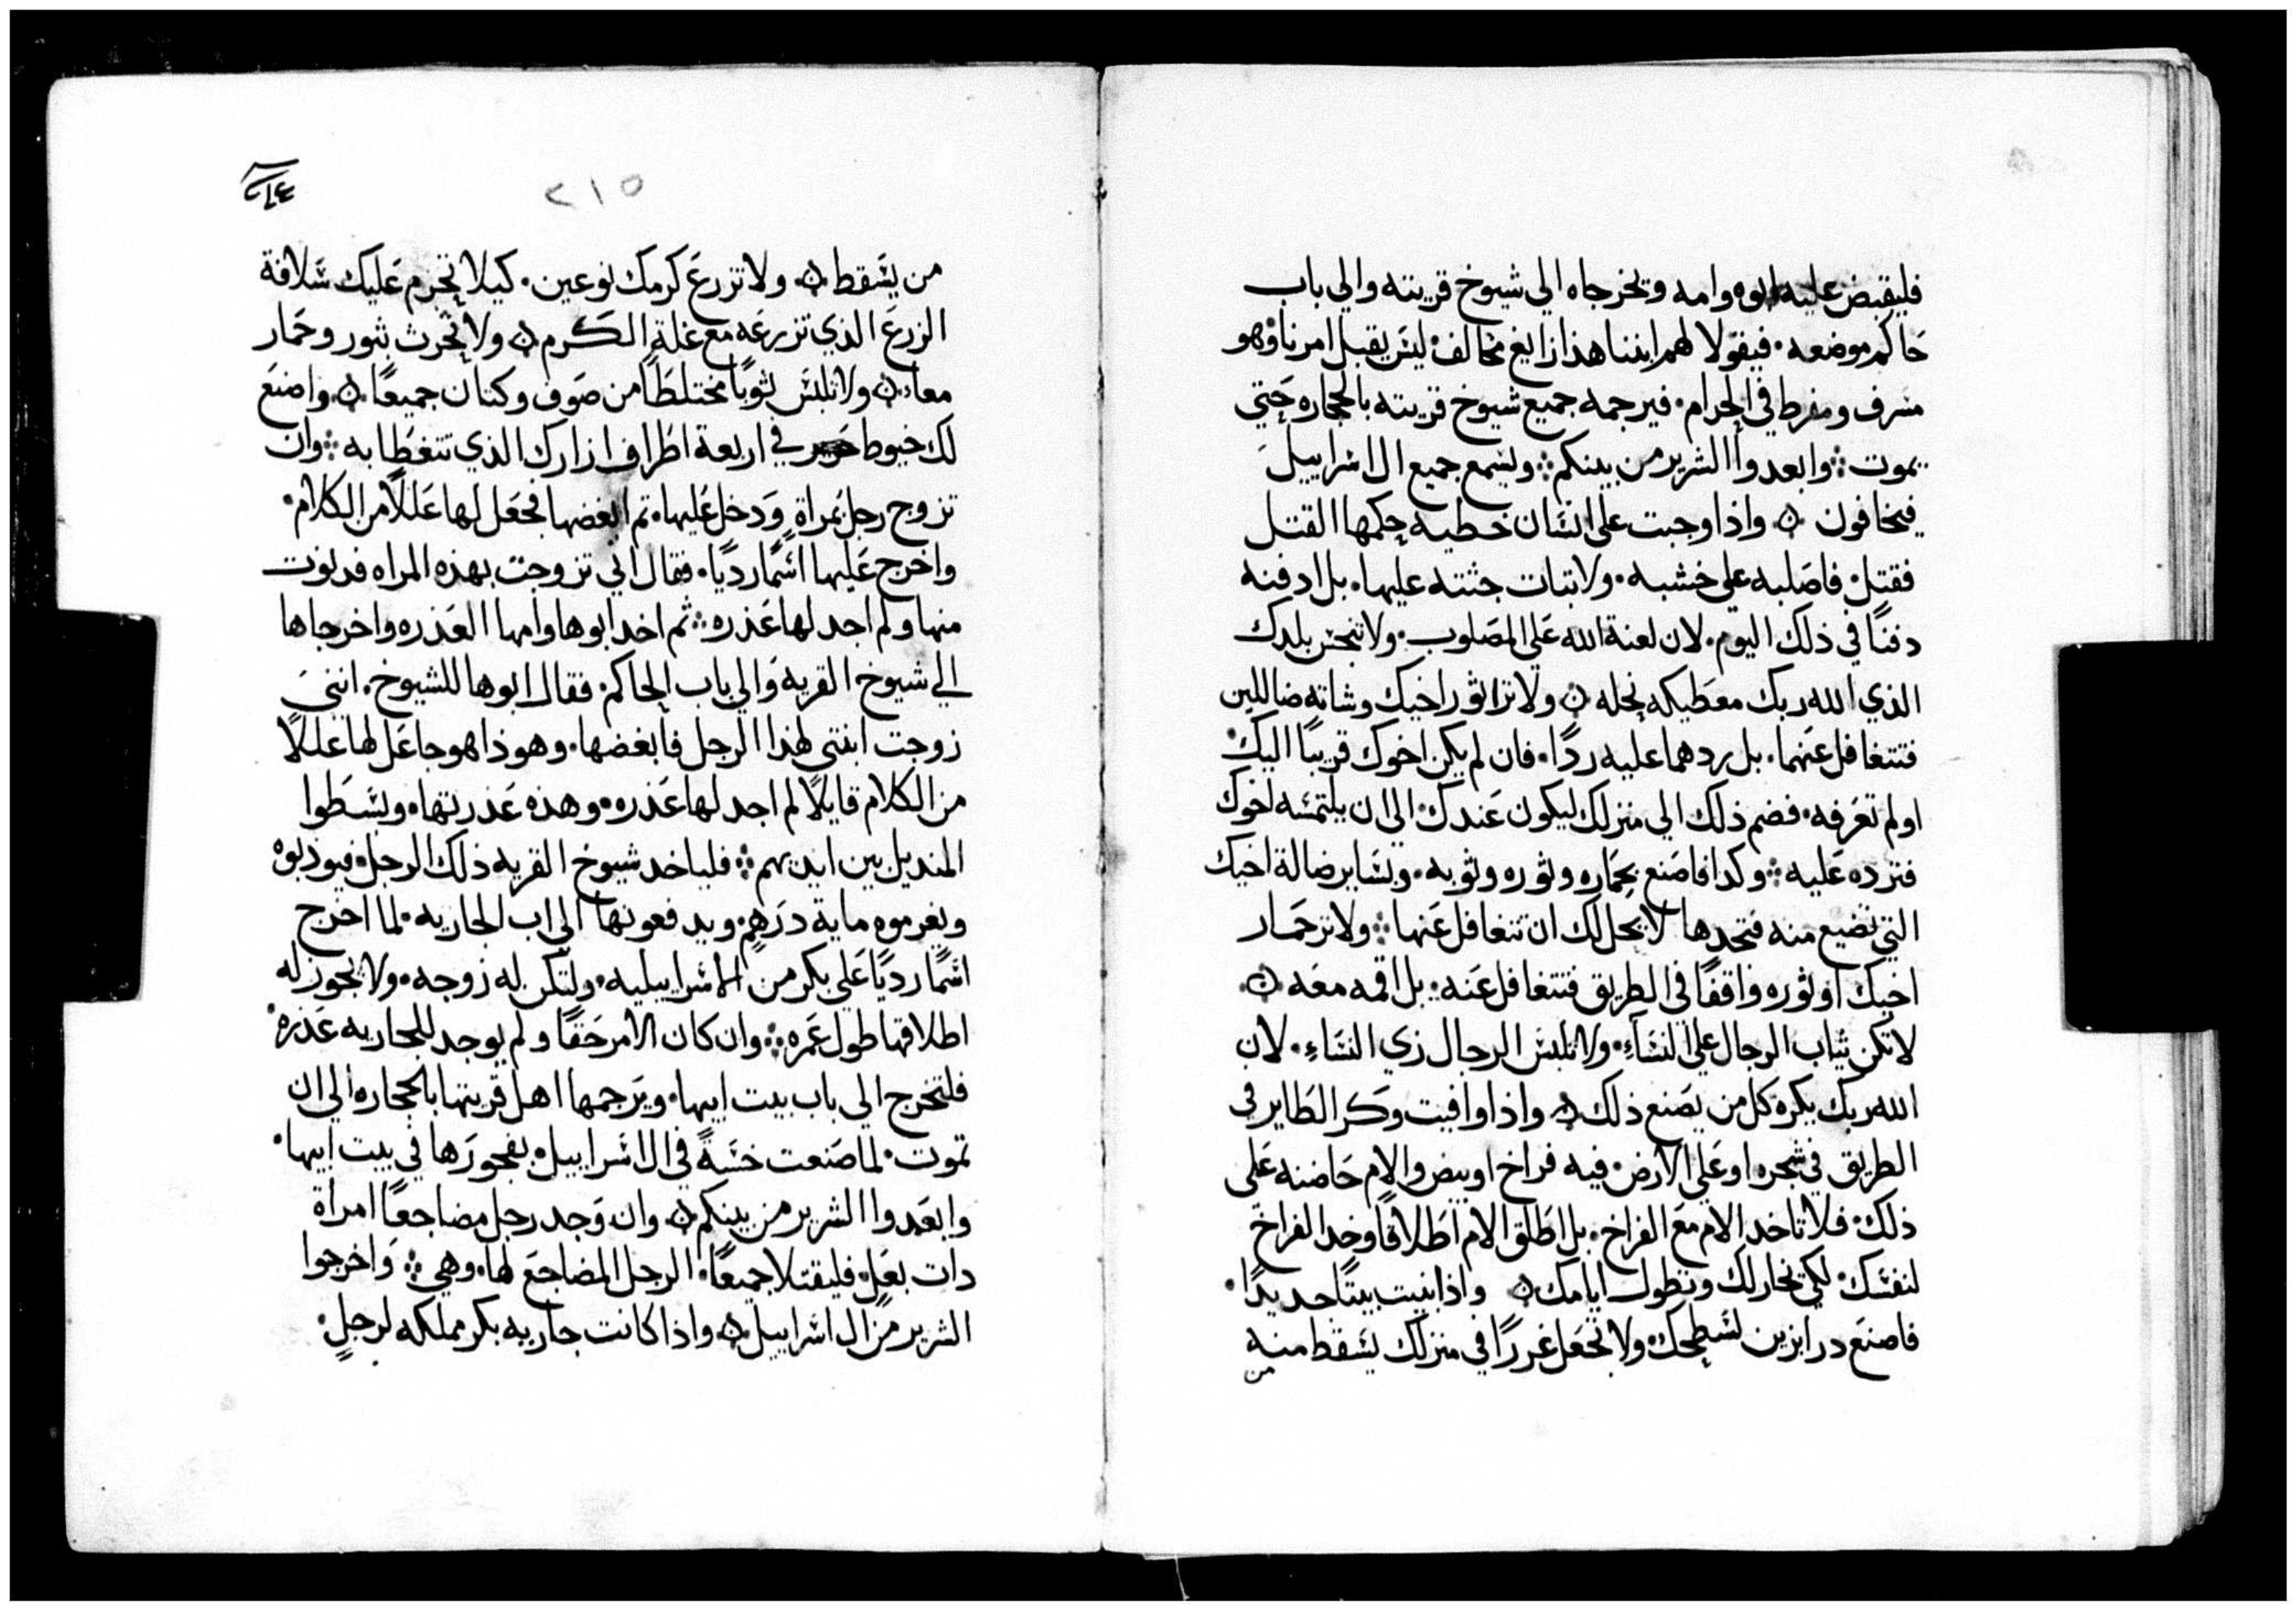 فليقبض عليه ابوه وامه ويخرجاه الي شيوخ قريته والي باب
حاكم موضعه. فيقولا لهم ابننا هذا زايغ مخالف ليس يقبل امرنا وهو
مسرف ومفرط في الحرام. فيرجمه جميع شيوخ قريته بالحجاره حتي
يموت ܀ وابعدوا الشرير من بينكم ܀ ويسمع جميع ال اسراييل
فيخافون ۞ واذا وجبت علي انسان خطيه حكمها القتل
فقتل. فاصلبه علي خشبه. ولا تبات جثته عليها. بل ادفنه
دفنًا في ذلك اليوم. لان لعنة الله علي المصلوب. ولا تنجس بلدك
الذي الله ربك معطيكه نحله ۞ ولا تر اثور اخيك وشاته ضاللين
فتتغافل عنهما. بل ردهما عليه ردًا. فان لم يكن اخوك قريبًا اليك
او لم تعرفه. فضم ذلك الي منزلك ليكون عندك. الي ان يلتمسه اخوك
فترده عليه ܀ وكدا فاصنع بحماره وثوره وثوبه. وبساير ضالة اخيك
التي تضيع منه فتجدها لا يحل لك ان تتغافل عنها ܀ ولا تر حمار
اخيك او ثوره واقفًا في الطريق فتتغافل عنه. بل اقمه معه ۞
لا تكن ثياب الرجال علي النساءِ. ولا تلبس الرجال زي النساءِ. لان
الله ربك يكره كل من يصنع ذلك ۞ واذا وافيت وكر الطاير في
الطريق في شجره او علي الارض. فيه فراخ او بيض والام حاضنه علي
ذلك. فلا تاخد الام مع الفراخ. بل اطلق الام اطلاقًا وخد الفراخ
لنفسك. لكي تحار لك وتطول ايامك ۞ واذا بنيت بيتًا جديدًا.
فاصنع درابزين لسطحك. ولا تجعل غررًا في منزلك يسقط منه
من
٢١٥
من يسقط ۞ ولا تزرع كرمك نوعين. كيلا تحرم عليك سلافة
الزرع الذي تزرعه مع غلة الكرم ۞ ولا تحرث بثور وحمار
معا ۞ ولا تلبس ثوبًا مختلطًا من صوف وكتان جميعًا ۞ واصنع
لك خيوط في اربعة اطراف ازارك الذي تتغطا به ܀ وان
تزوج رجل بمراة ودخل عليها. تم ابغضها فجعل لها عللًا من الكلام.
واخرج عليها اسمًا رديًا. فقال اني تزوجت بهذه المراه فدنوت
منها ولم اجد لها عذره ܀ ثم اخد ابوها وامها العذره واخرجاها
الي شيوخ القريه والي باب الحاكم. فقال ابوها للشيوخ. انني
زوجت ابنتي لهدا الرجل فابغضها. وهوذا هو جاعل لها عللًا
من الكلام قايلًا لم اجد لها عذره. وهذه عذرتها. وبسطوا
المنديل بين ايديهم ܀ فلياخد شيوخ القريه ذلك الرجل. فيودبوه
ويغرموه ماية درهم. ويدفعونها الي اب الجاريه. لما اخرج
اسمًا رديًا علي بكر من الاسراييليه. ولتكن له زوجه. ولا يجوز له
اطلاقها طول عمره ܀ وان كان الامر حقًا ولم يوجد للجاريه عذره.
فلتخرج الي باب بيت ابيها. ويرجمها اهل قريتها بالحجاره الي ان
تموت. لما صنعت خسةً في ال اسراييل. بفجورها في بيت ابيها.
وابعدوا الشرير من بينكم ۞ وان وجد رجل مضاجعًا امراة
دات بعل. فليقتلا جميعًا. الرجل المضاجع لها. وهي ܀ واخرجوا
الشرير من ال اسراييل ۞ واذا كانت جاريه بكر مملكه لرجلٍ.